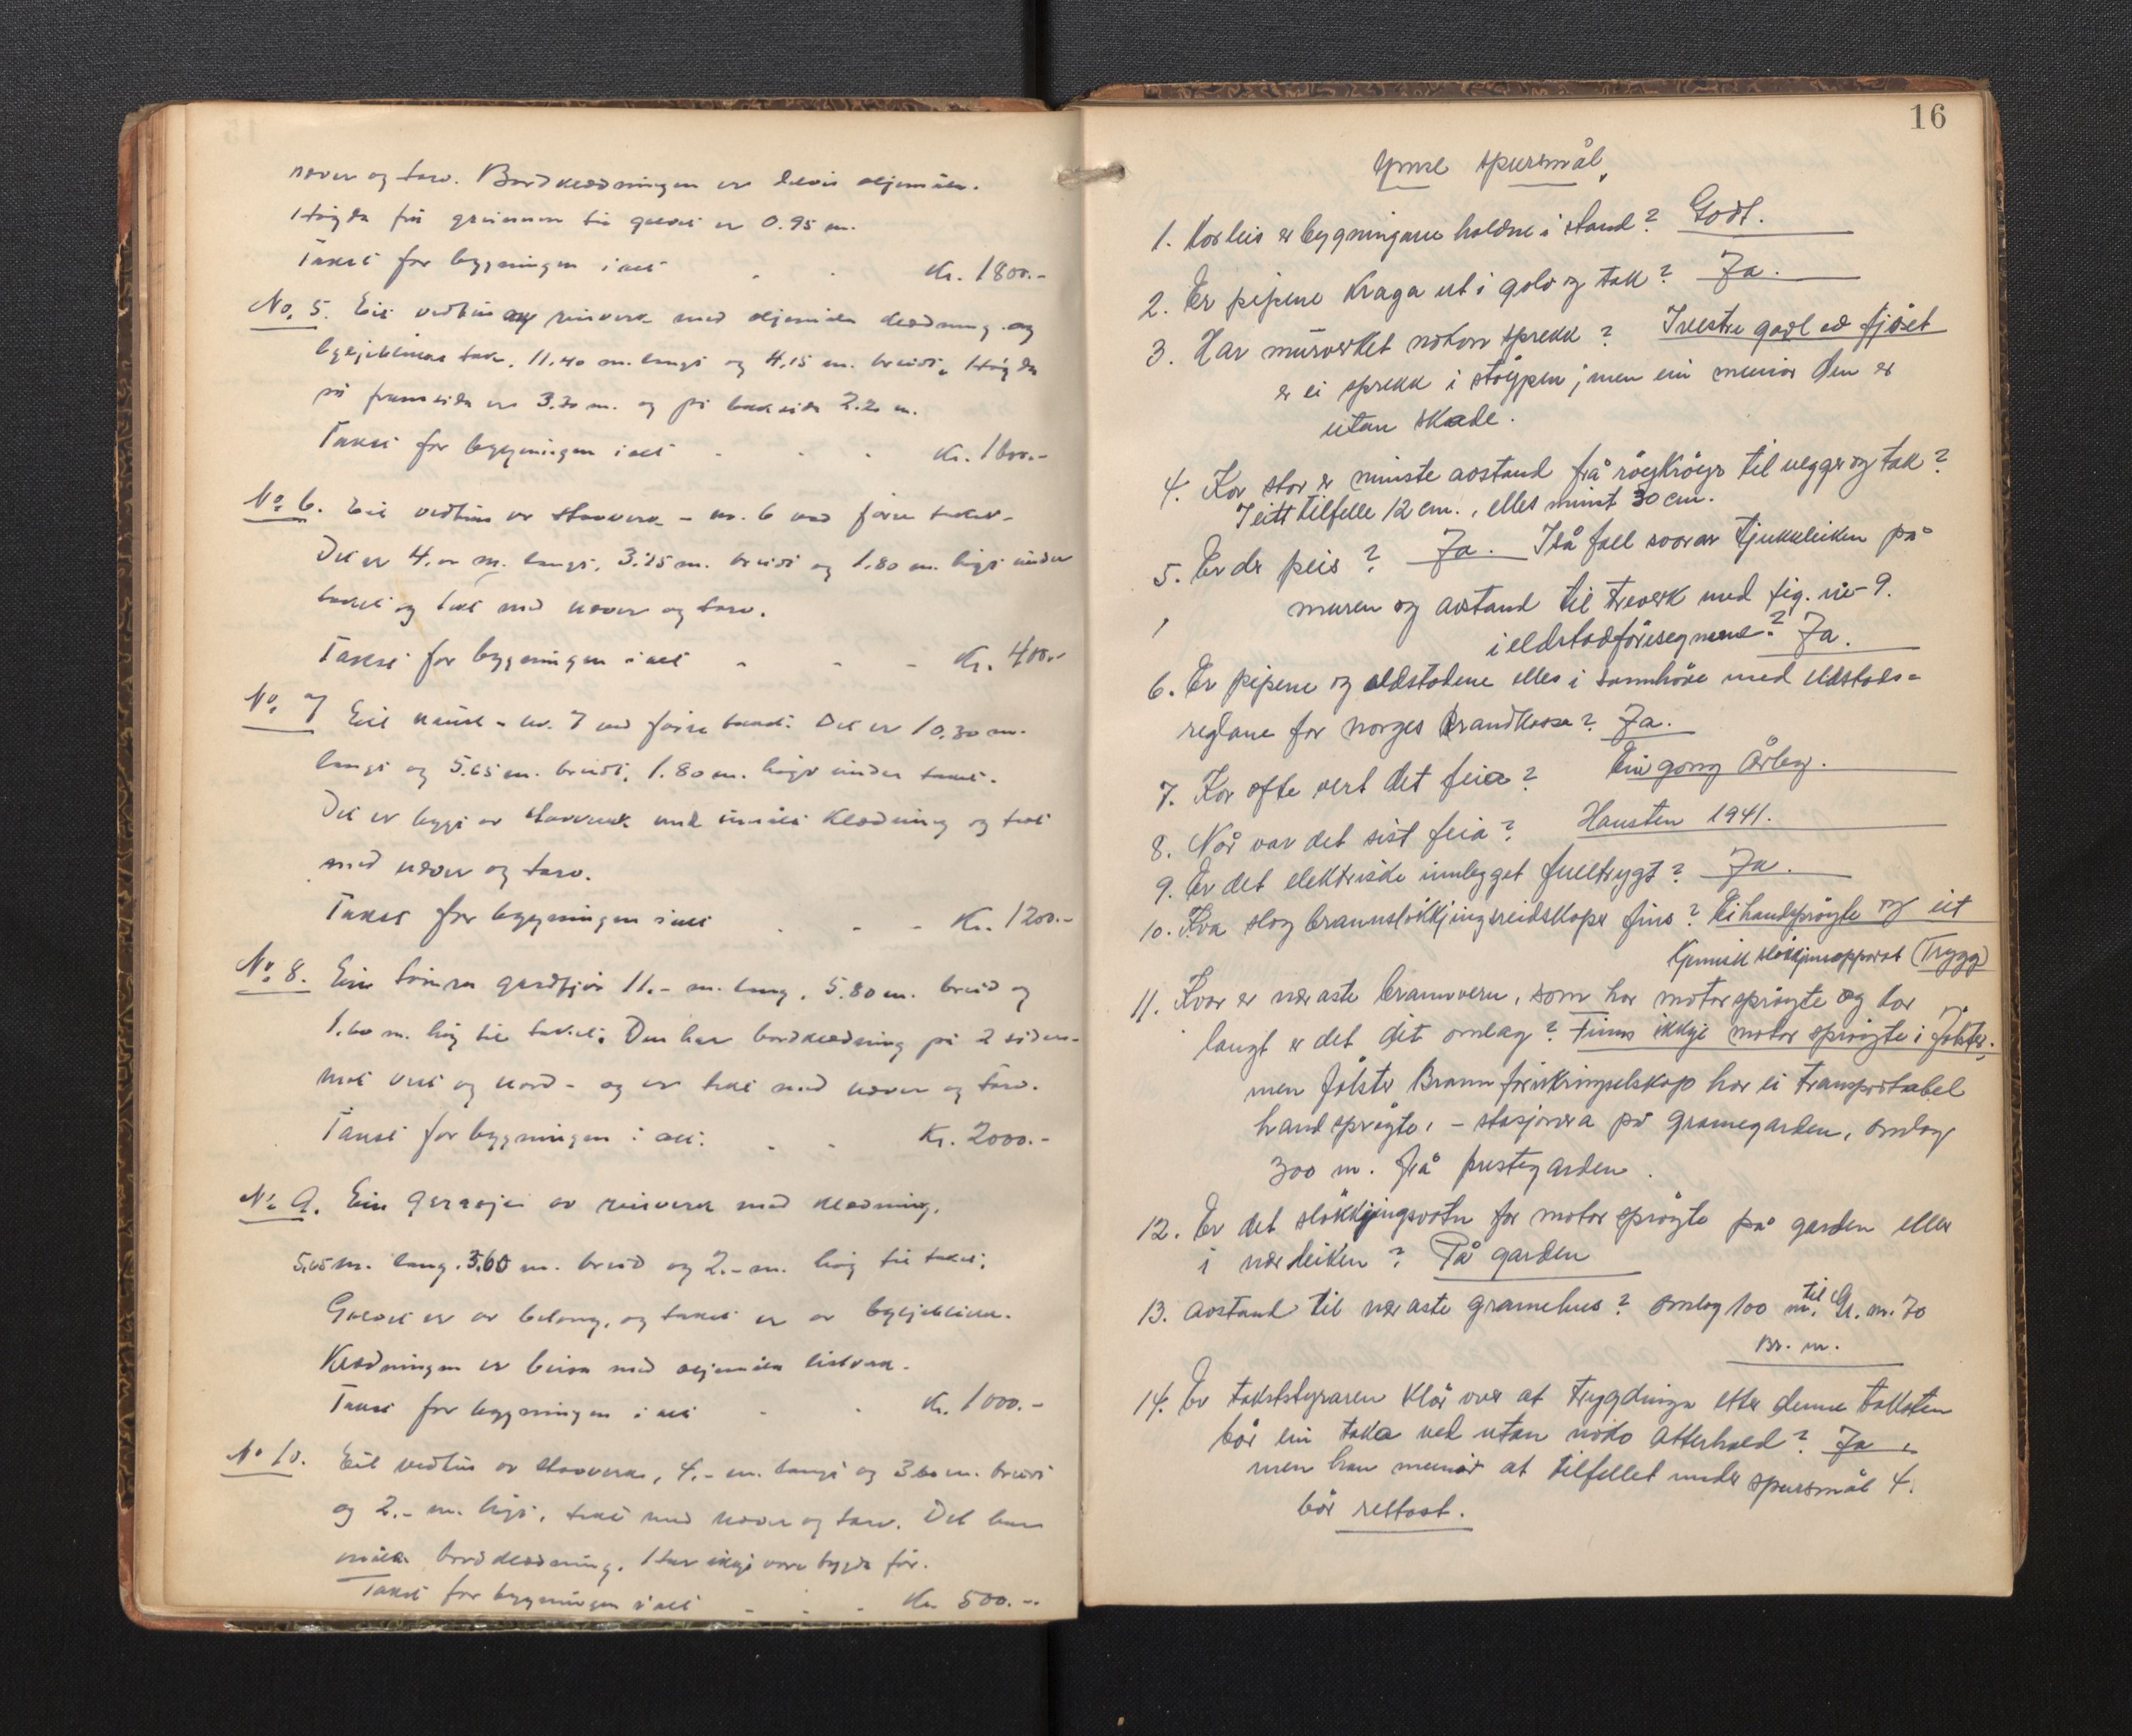 never og torv. Bordklædningen er delvis oljemåla.
Högda frå grunnen til golvet er 0.95 m.
Takst for bygningen i alt . . Kr. 1800.-
No. 5. Eit vedhus av reisverk med oljemåla klædning og
bylgjeblikk tak. 11.40 m. langt og 4.15 m. breidt. Högda
på framsida er 3.30 m. og på baksida 2.20 m.
Takst for bygningen i alt - - . Kr. 1600.-
No. 6. Eit vedhus av stavverk - nr. 6 ved förre takst.-
Det er 4.00 m. langt, 3.25 m. breidt og 1.80 m. högt under
taket og tekt med never og torv.
Takst for bygningen i alt - - - Kr. 400.-
No. 7 Eit naust - nr. 7 ved förre takst. Det er 10.30 m.
langt og 5.65 m. breidt, 1.80 m. högt under taket.
Det er bygt av stavverk med umåla klædning og tekt
med never og torv.
Takst for bygningen i alt . - - Kr. 1200.-
No. 8. Ein tömra geitfjös 11.- m. lang, 5.80 m. breid og
1.60 m. hög til taket. Den har bordklædning på 2 sider-
mot vest og nord - og er tekt med never og torv.
Takst for bygningen i alt. - - Kr. 2000.-
No 9. Ein garasje av reisverk med klædning,
5.65 m. lang. 3,60 m. breid og 2.- m. hög til taket.
Golvet er av betong, og taket er av bylgjeblikk.
Klædningen er beisa med oljemåla listverk.
Takst for bygningen i alt - . Kr. 1000.-
No 10. Eit vedhus av stavverk, 4.- m. langt og 3.60 m. breidt
og 2.- m. högt, tekt med never og torv. Det har
måla bordklædning. Har ikkje vore bygda för.
Takst for bygningen i alt - . - Kr. 500.-
16
Ymse spursmål.
1. Korleis er bygningane haldne i stand? Godt.
2. Er pipene kraga ut i golv og tak? Ja.
3. Har murverket nokon sprekk? I vestre gavl av fjöset
er ei sprekk i stöypen; men ein meinar den er
utan skade.
4. Kor stor er minste avstand frå röykröyr til vegger og tak?
I eitt tilfelle 12 cm., elles minst 30 cm.
5. Er dr peis? Ja. I så fall svarar tjukkleiken på
muren og avstand til treverk med fig. nr. 9.
i eldstadföresegnene? Ja.
6. Er pipene og eldstadene elles i samhöve med eldstads-
reglane for Norges Brandkasse? Ja.
7. Kor ofte vert det feia? Ein gong årleg.
8. Når var det sist feia? Hausten 1941.
9. Er det elektriske innlegget fulltrygt? Ja.
10. Kva slag brannslökkjingsreidskaper fins? Ei handspröyte og eit
kjemisk slökkjingsapparat (Trygg)
11. Kvar er næraste brannvern, som har motorspröyte og kor
langt er det dit omlag? Finns ikkje motorspröyte i Jölster.
men Jölster Brannforsikringselskap har ei transportabel
handspröyte, - stasjonera på gramegarden, omlag
300 m. frå prestegarden.
12. Er det slökkjingsvatn for motorspröyte på garden eller
i nærleiken? På garden
13. Avstand til næraste gramehus? omlag 100 m. til G. nr. 70
Br. nr.
14. Er takststyraren klår over at trygdinga etter denne taksten
bör ein taka ved utan noko atterhald? Ja,
men han meinar at tilfellet under spursmål 4.
bör rettast.